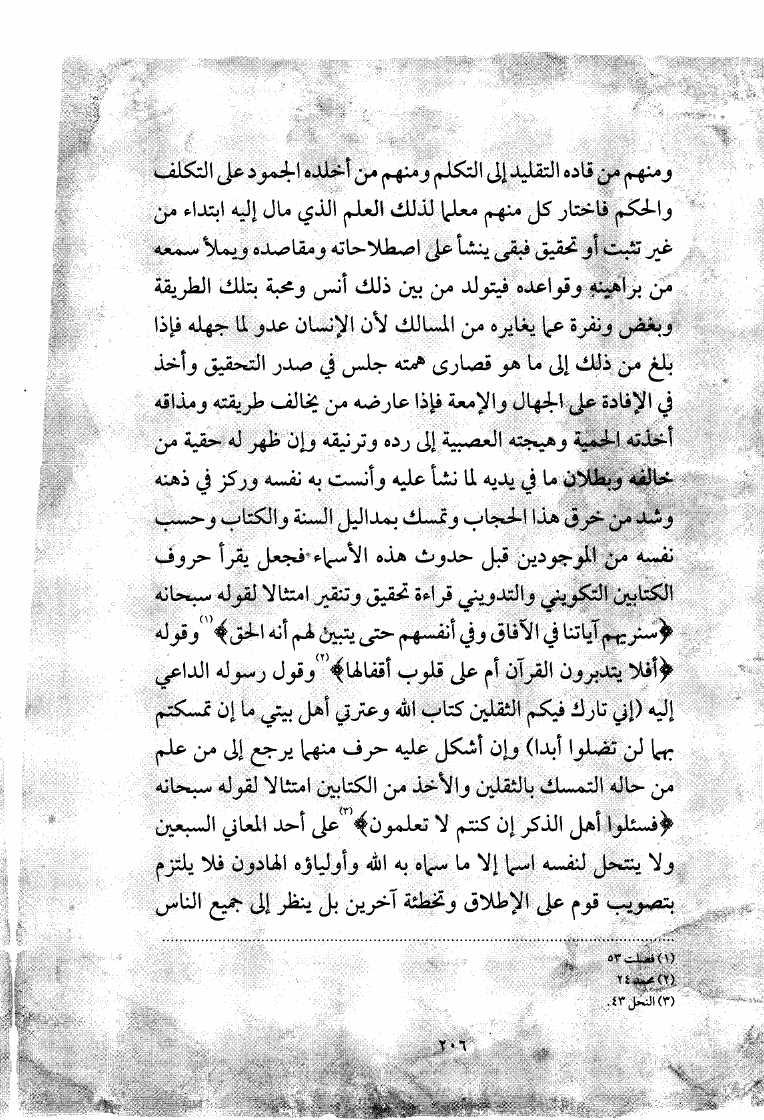 ومنهم من قاده التقليد إلى التكلم ومنهم من أخلده الجمود على التكلف
والحكم فاختار كل منهم معلما لذلك العلم الذي مال إليه ابتداء من
غير تثبت أو تحقيق فبقى ينشأ على اصطلاحاته ومقاصده ويملأ سمعه
من براهينه وقواعده فيتولد من بين ذلك أنس ومحبة بتلك الطريقة
وبغض ونفرة عما يغايره من المسالك لأن الإنسان عدو لما جهله فإذا
بلغ من ذلك إلى ما هو قصارى همته جلس في صدر التحقيق وأخذ
في الإفادة على الجهال والإمعة فإذا عارضه من يخالف طريقته ومذاقه
أخذته الحمية وهيجته العصبية إلى رده وترنيقه وإن ظهر له حقية من
خالفه وبطلان ما في يديه لما نشأ عليه وأنست به نفسه وركز في ذهنه
وشد من خرق هذا الحجاب وتمسك بمداليل السنة والكتاب وحسب
نفسه من الموجودين قبل حدوث هذه الأسماء فجعل يقرأ حروف
الكتابين التكويني والتدويني قراءة تحقيق وتنقير امتثالا لقوله سبحانه
﴿سنريهم آياتنا في الآفاق وفي أنفسهم حتى يتبين لهم أنه الحق﴾(١) وقوله
﴿أفلا يتدبرون القرآن أم على قلوب أقفالها﴾(٢) وقول رسوله الداعي
إليه (إني تارك فيكم الثقلين كتاب الله وعترتي أهل بيتي ما إن تمسكتم
بهما لن تضلوا أبدا) وإن أشكل عليه حرف منهما يرجع إلى من علم
من حاله التمسك بالثقلين والأخذ من الكتابين امتثالا لقوله سبحانه
﴿فسئلوا أهل الذكر إن كنتم لا تعلمون﴾(٣) على أحد المعاني السبعين
ولا ينتحل لنفسه اسما إلا ما سماه به الله وأولياؤه الهادون فلا يلتزم
بتصويب قوم على الإطلاق وتخطئة آخرين بل ينظر إلى جميع الناس
(١) فصلت ٥٣
(٢) محمد ٢٤
(٣) النحل ٤٣.
٢٠٦